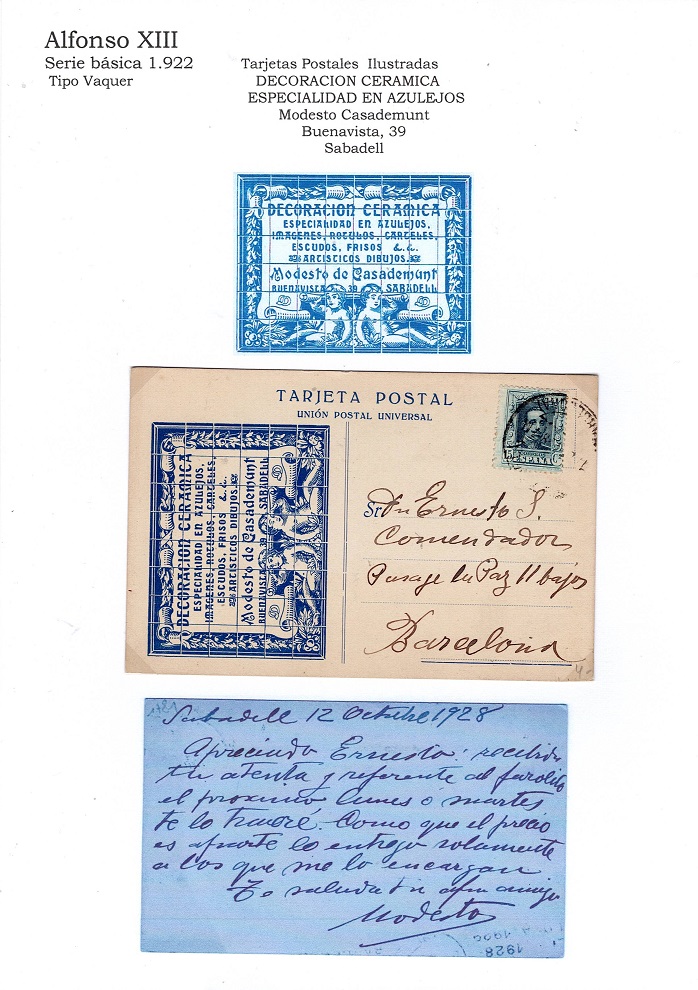 Alfonso XIII
Serie básica 1.922
Tipo Vaquer
Tarjetas Postales Ilustradas
DECORACION CERAMICA
ESPECIALIDAD EN AZULEJOS
Modesto Casademunt
Buenavista, 39
Sabadell
DECORACION CERAMICA
ESPECIALIDAD EN AZULEJOS,
IMAGENES, ROTULOS, CARTELES,
ESCUDOS, FRISOS &.&.
ARTÍSTICOS DIBUJOS.
Modesto de Casademunt
BUENAVISTA 39 SABADELL
TARJETA POSTAL
UNIÓN POSTAL UNIVERSAL
ESPAÑA
DECORACION CERAMICA
ESPECIALIDAD EN AZULEJOS,
IMAGENES, ROTULOS, CARTELES,
ESCUDOS, FRISOS &.&.
ARTÍSTICOS DIBUJOS.
Modesto de Casademunt
BUENAVISTA 39 SABADELL
Sr. Dn Ernesto S.
Comendador
Pasaje La Paz 11 bajos
Barcelona
Sabadell 12 Octubre 1928
Apreciado Ernesto: recibida
tu atenta y referente al farolito
el proximo lunes ó martes
te lo traeré. Como que el precio
es aparte lo entrego solamente
a los que me lo encargan
Te saluda tu afmo amigo
Modesto
1928